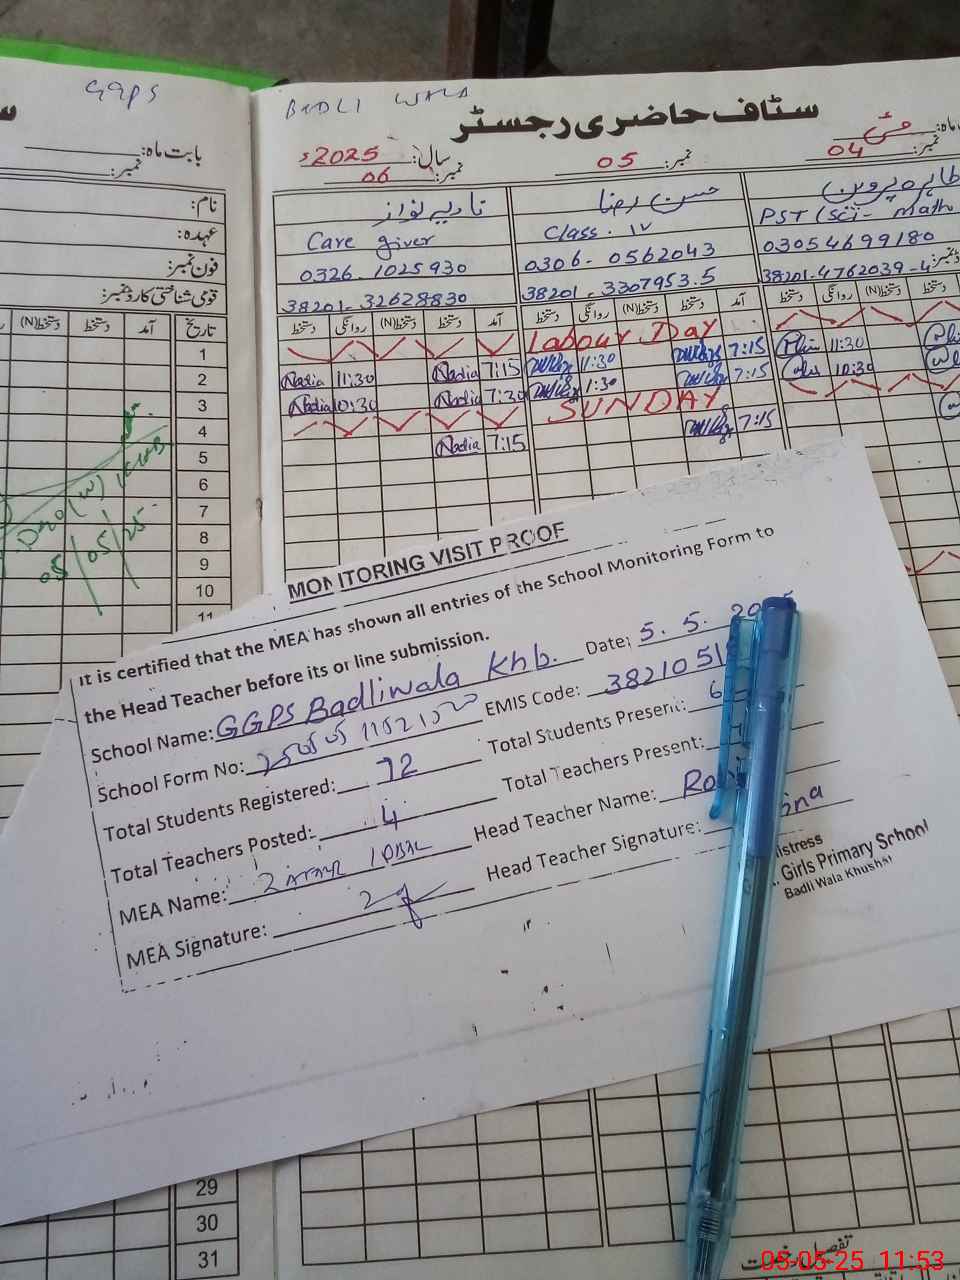 GGPS
BADLI WALA
سٹاف حاضری رجسٹر
بابت ماہ:
نمبر:
سال: 2025ء
نمبر: 06
نمبر: 05
ماہ: مئی
نمبر: 04
نام:
عہدہ:
فون نمبر:
قومی شناختی کارڈ نمبر:
نادیہ نواز
Care giver
0326-1025930
38201-32628830
حسن رضا
Class. IV
0306-0562043
38201-3307953.5
طاہرہ پروین
PST (Sci-Math
03054699180
38201-4762039-4
تاریخ آمد دستخط دستخط(N) روانگی دستخط
آمد دستخط دستخط(N) روانگی دستخط
آمد دستخط دستخط(N) روانگی دستخط
دستخط(N) روانگی دستخط
1
Labour Day
2
Nadia 11:30 Nadia 7:15
11:30 7:15
11:30
3
Nadia 10:30 Nadia 7:30
1:30 7:15
10:30
4
SUNDAY
5
Nadia 7:15
7:15
6
7
8
9
10
11
05/05/25
MONITORING VISIT PROOF
It is certified that the MEA has shown all entries of the School Monitoring Form to
the Head Teacher before its or line submission.
School Name: GGPS Badliwala Khb. Date: 5.5.20
School Form No: EMIS Code: 38210518
Total Students Registered: 72 Total Students Present: 6
Total Teachers Posted: 4 Total Teachers Present:
MEA Name: ZAFAR IQBAL Head Teacher Name:
MEA Signature: Head Teacher Signature:
Girls Primary School
Badli Wala Khushab
29
30
31
تفصیل رخصت
05-05-25 11:53